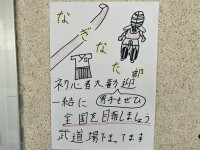 なぎなた部
初心者大歓迎
一緒に 男子もぜひ
全国を目指しましょう
武道場でまってます